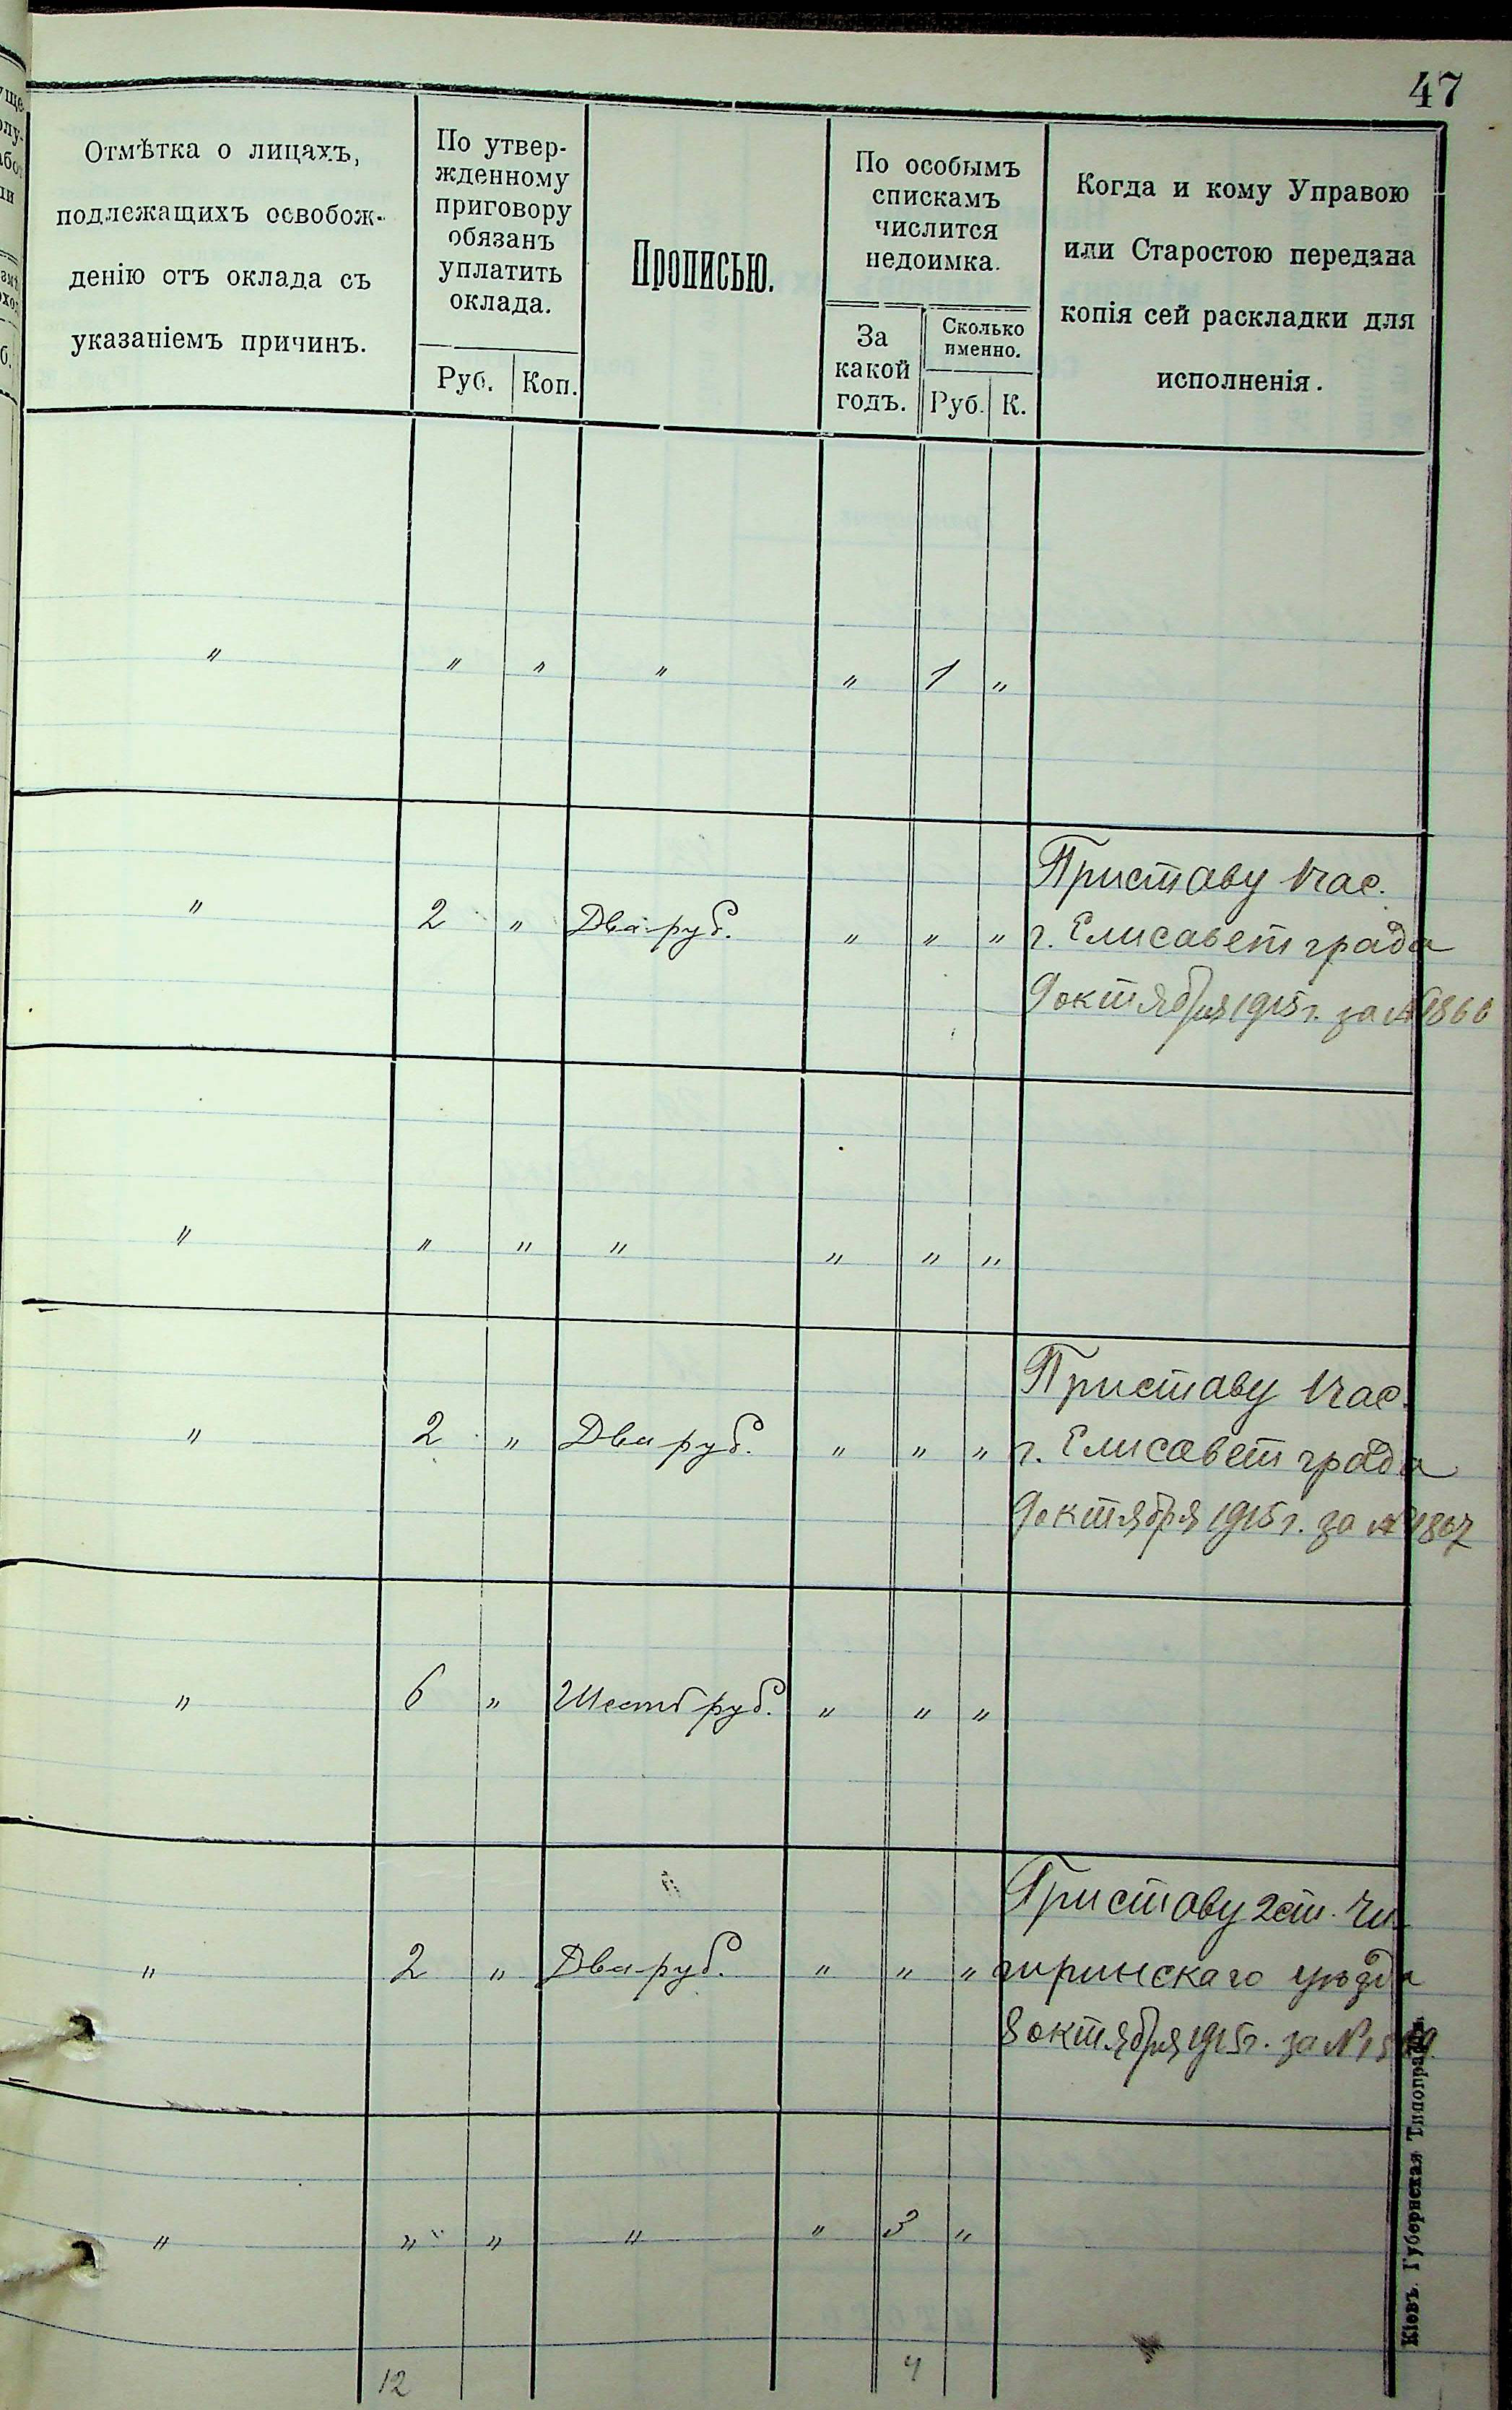 47
Отмѣтка о лицахъ,
подлежащихъ освобож-
денію отъ оклада съ
указаніемъ причинъ.
По утвер-
жденному
приговору
обязанъ
уплатить
оклада.
Руб. Коп.
Прописью.
По особымъ
спискамъ
числится
недоимка.
За
какой
годъ.
Сколько
именно.
Руб. К.
Когда и кому Управою
или Старостою передана
копія сей раскладки для
исполненія.
" " " " " 1 "
" 2 " Два руб. " " "
Приставу 1 час.
г. Елисаветграда
9 октября 1915 г. за № 1866
" " " " " " "
" 2 " Два руб. " " "
Приставу 1 час.
г. Елисаветграда
9 октября 1915 г. за № 1867
" 6 " Шесть руб. " " "
" 2 " Два руб. " " "
Приставу 2 ст. Чи
гиринскаго уѣзда
8 октября 1915 г. за №
" " " " " 3 "
12 4
Кіевъ. Губернская Типографія.